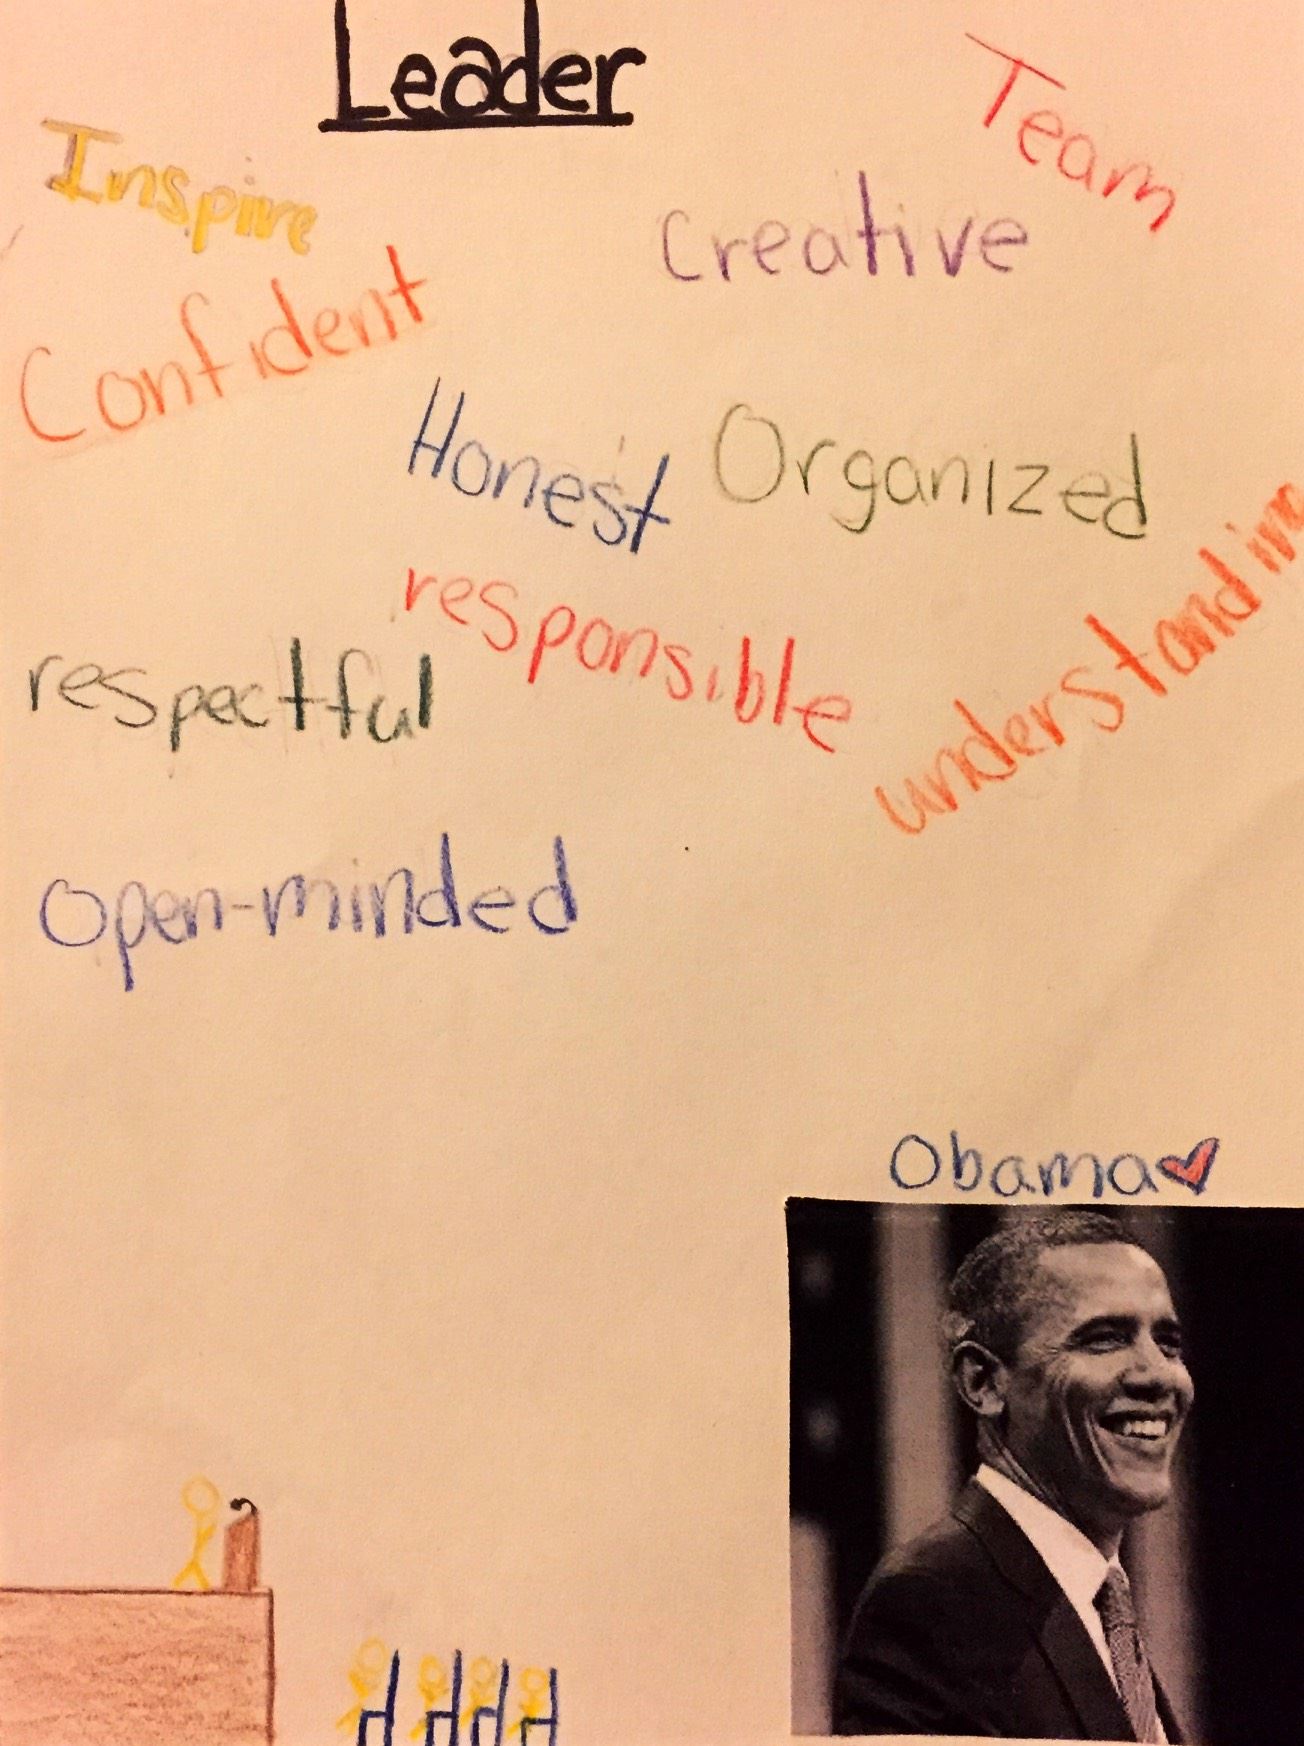 Leader
Team
Inspire
Creative
Confident
Honest
Organized
responsible
understandin
respectful
open-minded
Obama